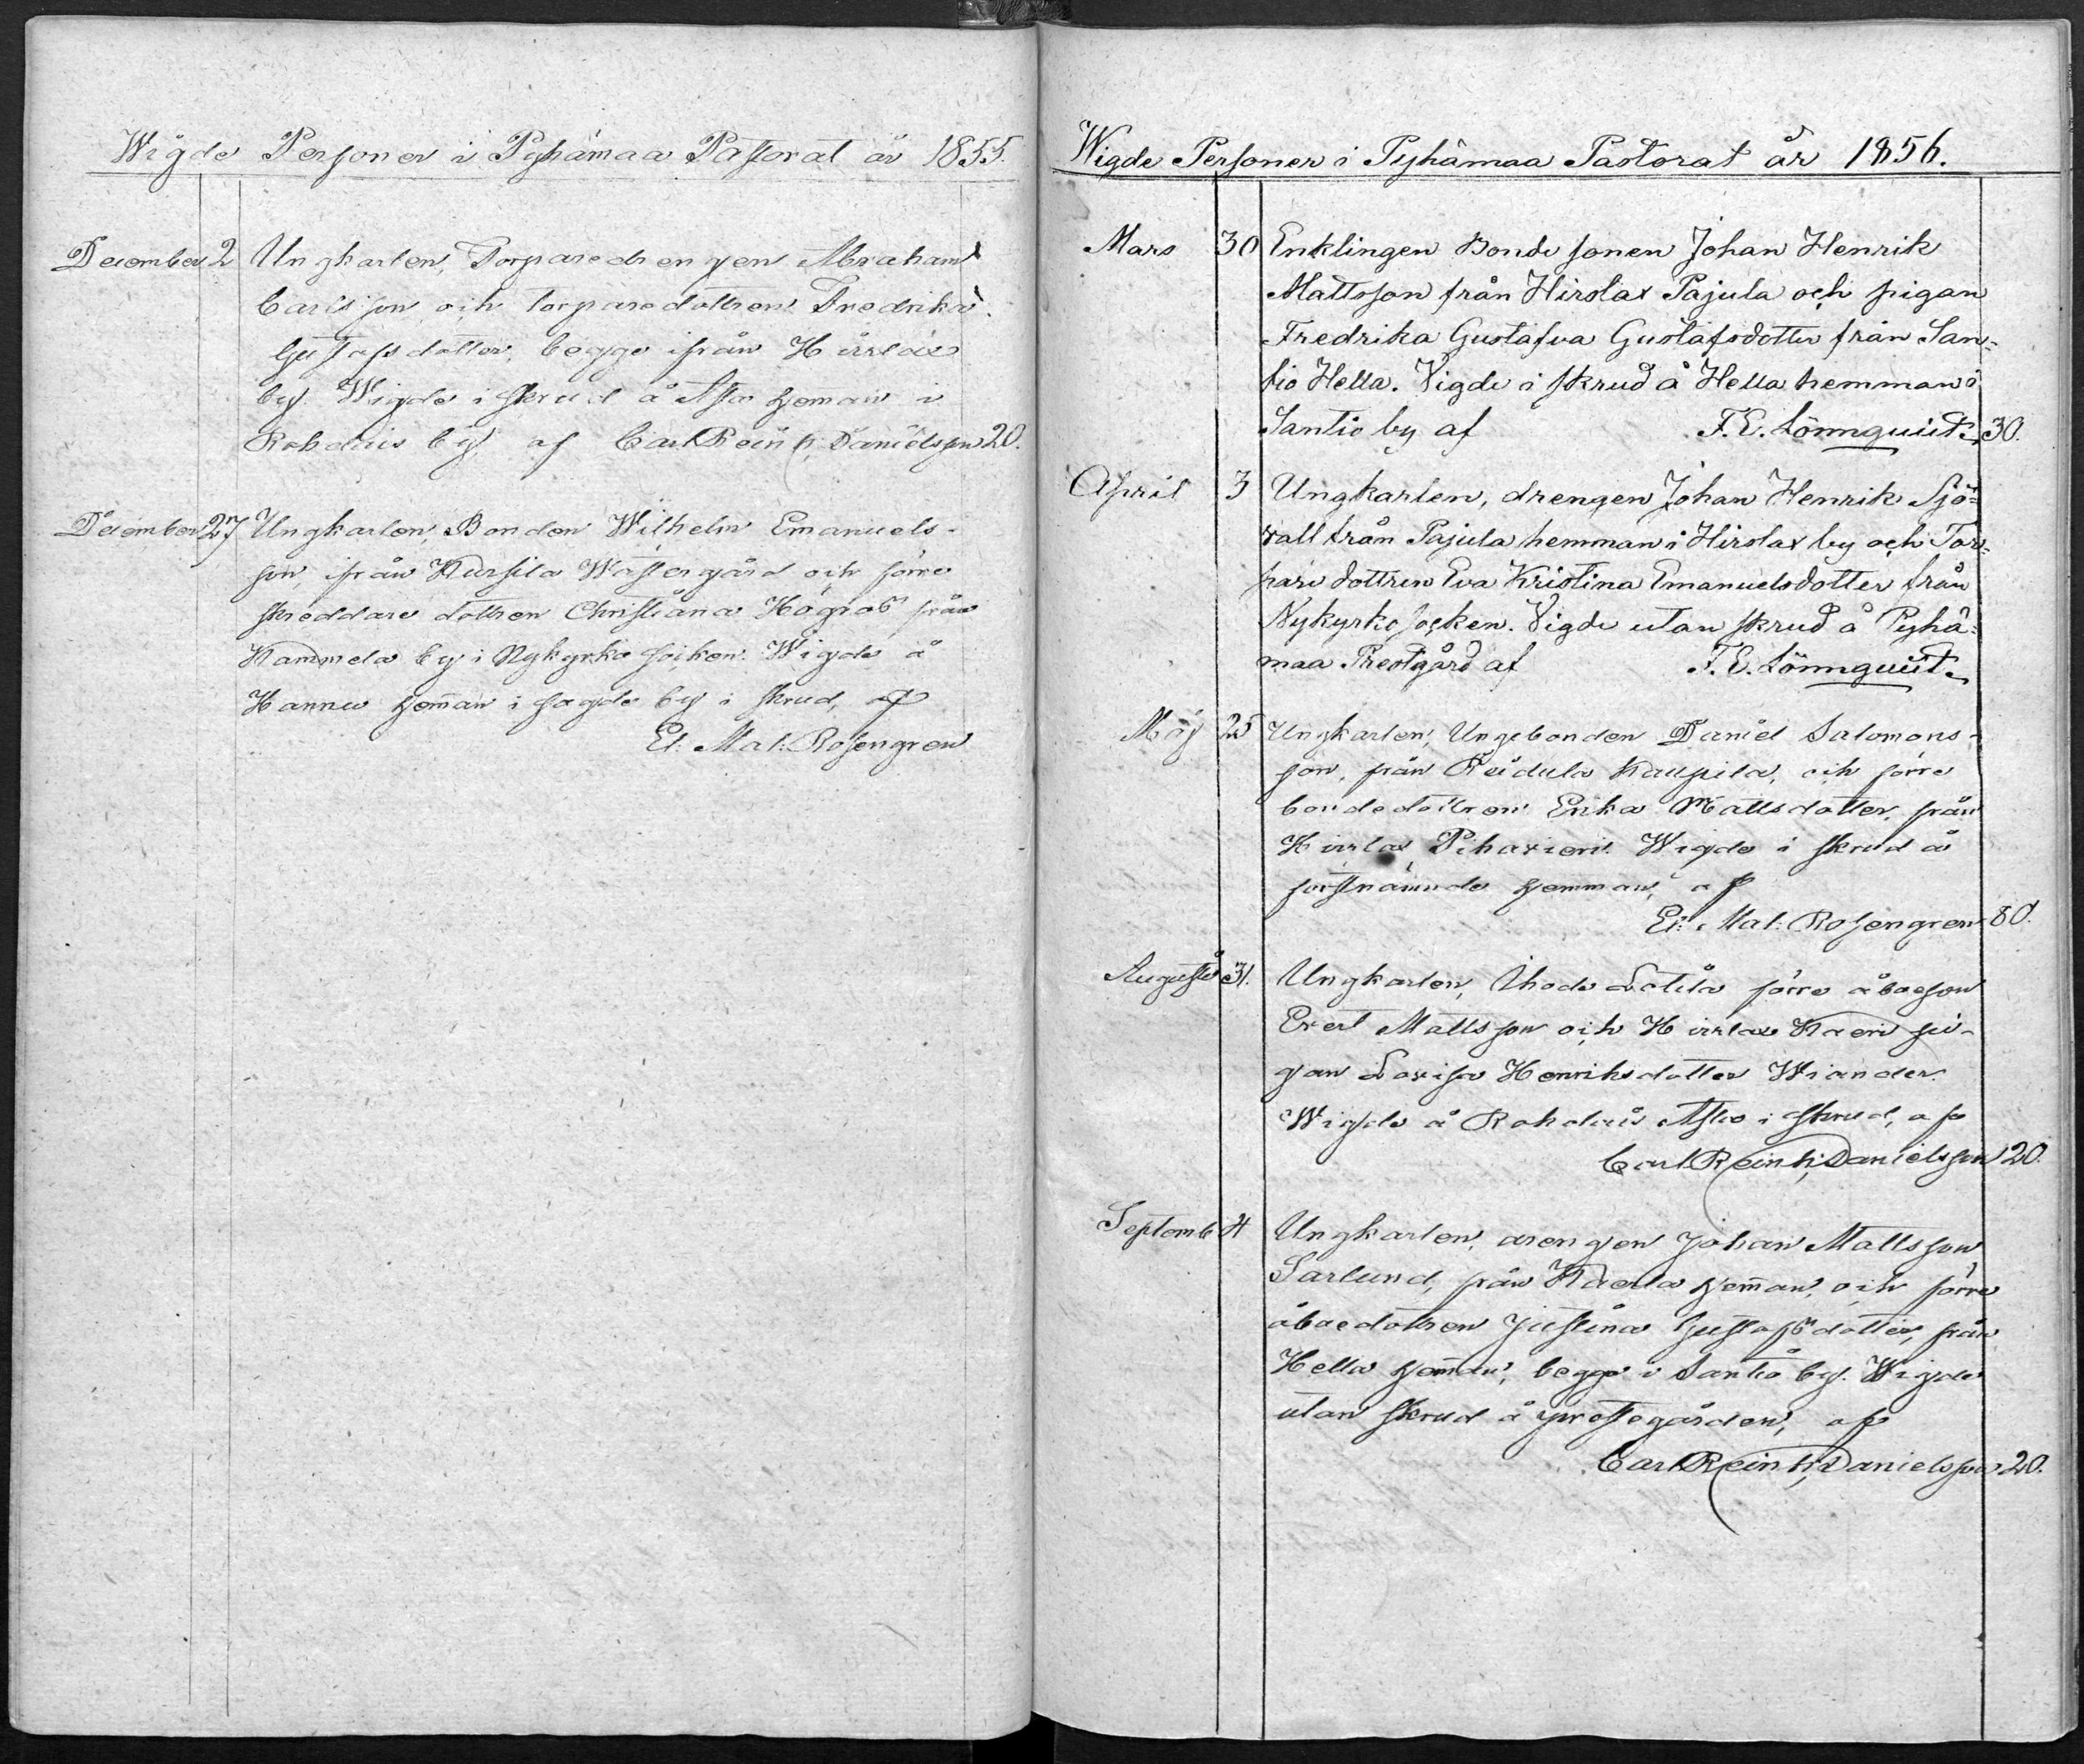 Wigde Personer i Pyhämaa Pastorat år 1855.
December 2 Ungkarlen, Torparedrengen Abraham
Carlsson och torparedottren Fredrika
Gustafsdotter, begge ifrån Hirslax
by. Wigde i skrud å Asta heman i
Rohdais by af Carl Reinh. Danielsson 20.
December 27 Ungkarlen, Bonden Wilhelm Emanuels-
son, ifrån Kursila Westergård och förre
skreddare dottren Christiana Högros från
Kammela by i Nykyrko socken. Wigde å
Hannu heman i sagde by i skrud, af
El: Mat: Rosengren
Wigde Personer i Pyhämaa Pastorat år 1856.
Mars 30 Enklingen Bonde sonen Johan Henrik
Mattsson från Hirslax Pajula och pigan
Fredrika Gustafva Gustafsdotter från San-
tio Hella. Vigde i skrud å Hella hemman i
Santio by af F. E. Lönnquist. 30.
April 3 Ungkarlen, drengen Johan Henrik Sjö-
vall från Pajula hemman i Hirslax by och Tor-
pare dottren Eva Kristina Emanuelsdotter från
Nykyrko socken. Vigde utan skrud å Pyhä-
maa Prestgård af F. E. Lönnquist.
Maj 25 Ungkarlen, Ungebonden Daniel Salomons-
son, från Reidula Kaupila, och förre
bondedottren Erika Mattsdotter, från
Hirslax, Pihavieri. Wigde i skrud å
förstnämnde hemman, af
El: Mat: Rosengren 80.
Augusti 31. Ungkarlen, Ihode Lotila förre åboeson
Evert Mattsson och Hirslax Kaeri pi-
gan Lovisa Henriksdotter Wiander.
Wigde å Rohdais Asta i skrud, af
Carl Reinh. Danielsson 20.
Septemb 4 Ungkarlen, drengen Johan Mattsson
Sarlund, från Kaerla heman, och förre
åboedottren Justina Gustafsdotter, från
Hella heman, begge i Santio by. Wigde
utan skrud å prostegården, af
Carl Reinh. Danielsson 20.